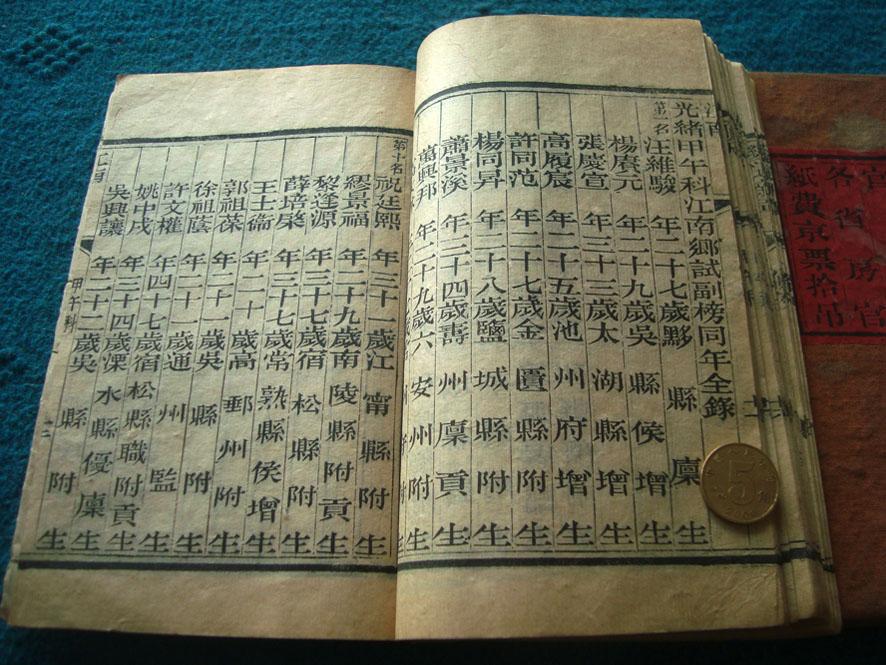 光緒甲午科江南鄉試副榜同年全錄
第一名汪維駿 年二十七歲黟縣廩生
楊賡元 年二十九歲吳縣侯增生
張慶宣 年三十三歲太湖縣增生
高履宸 年二十五歲池州府增生
許同范 年二十七歲金匱縣附生
楊同昇 年二十八歲鹽城縣附生
蕭景溪 年二十四歲壽州廩貢生
萬興邦 年二十九歲六安州附生
第十名祝廷熙 年三十一歲江甯縣附生
繆景福 年二十九歲南陵縣附貢生
黎逢源 年三十七歲宿松縣附生
薛培棨 年三十七歲常熟縣侯增生
王士衡 年二十一歲高郵州附生
郭祖葆 年二十一歲吳縣附生
徐祖蔭 年二十歲通州監生
許文權 年四十七歲宿松縣職附貢生
姚中戌 年三十四歲溧水縣優廩生
吳興讓 年二十二歲吳縣附生
甲午科
官
各省房官
紙費京票拾吊
5